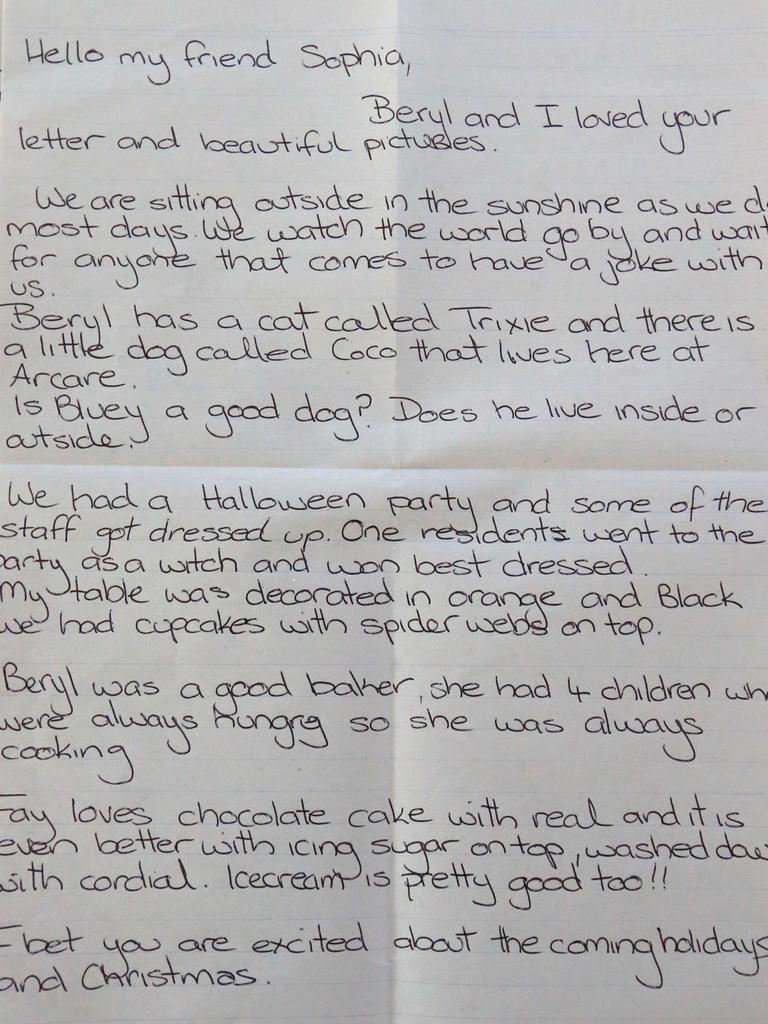 Hello my friend Sophia,
Beryl and I loved your
letter and beautiful pictures.
We are sitting outside in the sunshine as we d
most days. We watch the world go by and wait
for anyone that comes to have a joke with
us.
Beryl has a cat called Trixie and there is
a little dog called Coco that lives here at
Arcare.
Is Bluey a good dog? Does he live inside or
outside.
We had a Halloween party and some of the
staff got dressed up. One residents went to the
arty as a witch and won best dressed.
My table was decorated in orange and Black
we had cupcakes with spider webs on top.
Beryl was a good baker, she had 4 children wh
were always hungry so she was always
cooking
Fay loves chocolate cake with real and it is
even better with icing sugar on top, washed dow
with cordial. Icecream is pretty good too!!
I bet you are excited about the coming holidays
and Christmas.